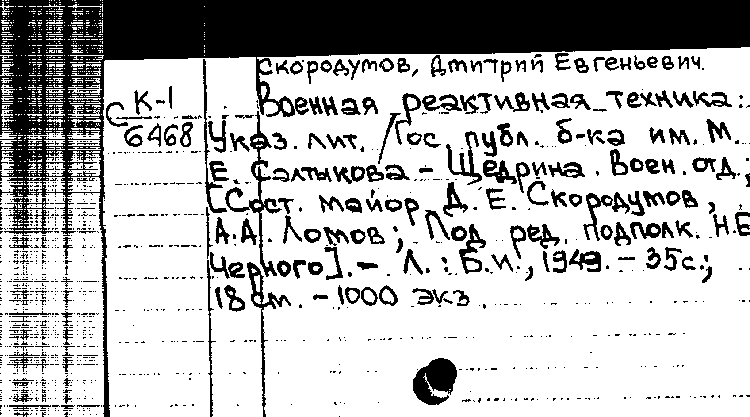 Скородумов, Дмитрий Евгеньевич.
С К-1
6468
Военная реактивная техника:
Указ. лит. / Гос. публ. б-ка им. М.
Е. Салтыкова – Щедрина. Воен. отд.;
[Сост. майор Д. Е. Скородумов,
А.А. Ломов; Под ред. подполк. Н.Е.
Черного]. – Л.: Б.и., 1949. – 35с.;
18 см. – 1000 экз.